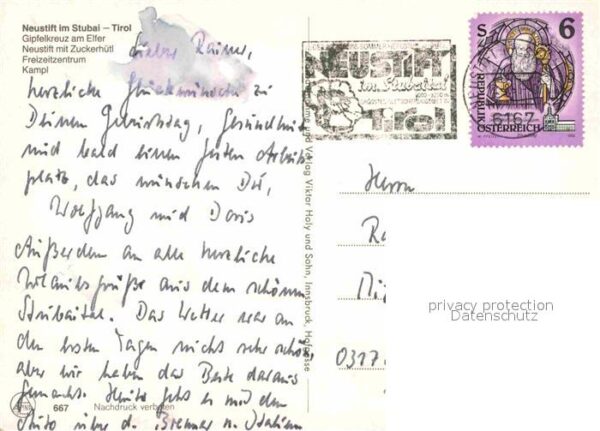 Neustift im Stubai – Tirol
Gipfelkreuz am Elfer
Neustift mit Zuckerhütl
Freizeitzentrum
Kampl
Lieber Rainer,
herzliche Glückwünsche zu
Deinem Geburtstag, Gesundheit
und bald einen guten Arbeits
platz, das wünschen Dir,
Wolfgang und Doris
Außerdem an alle herzliche
Urlaubsgrüße aus dem schönen
Stubaital. Das Wetter war an
den ersten Tagen nicht sehr schön,
aber wir haben das Beste daraus
gemacht. Heute geht es mit dem
Auto über d. Brenner n. Italien
667
Nachdruck verboten
Verlag Viktor Holy und Sohn, Innsbruck, Hofgasse
NEUSTIFT
im Stubaital
Tirol
6167
S 6
REPUBLIK
ÖSTERREICH
Herrn
0317
privacy protection
Datenschutz